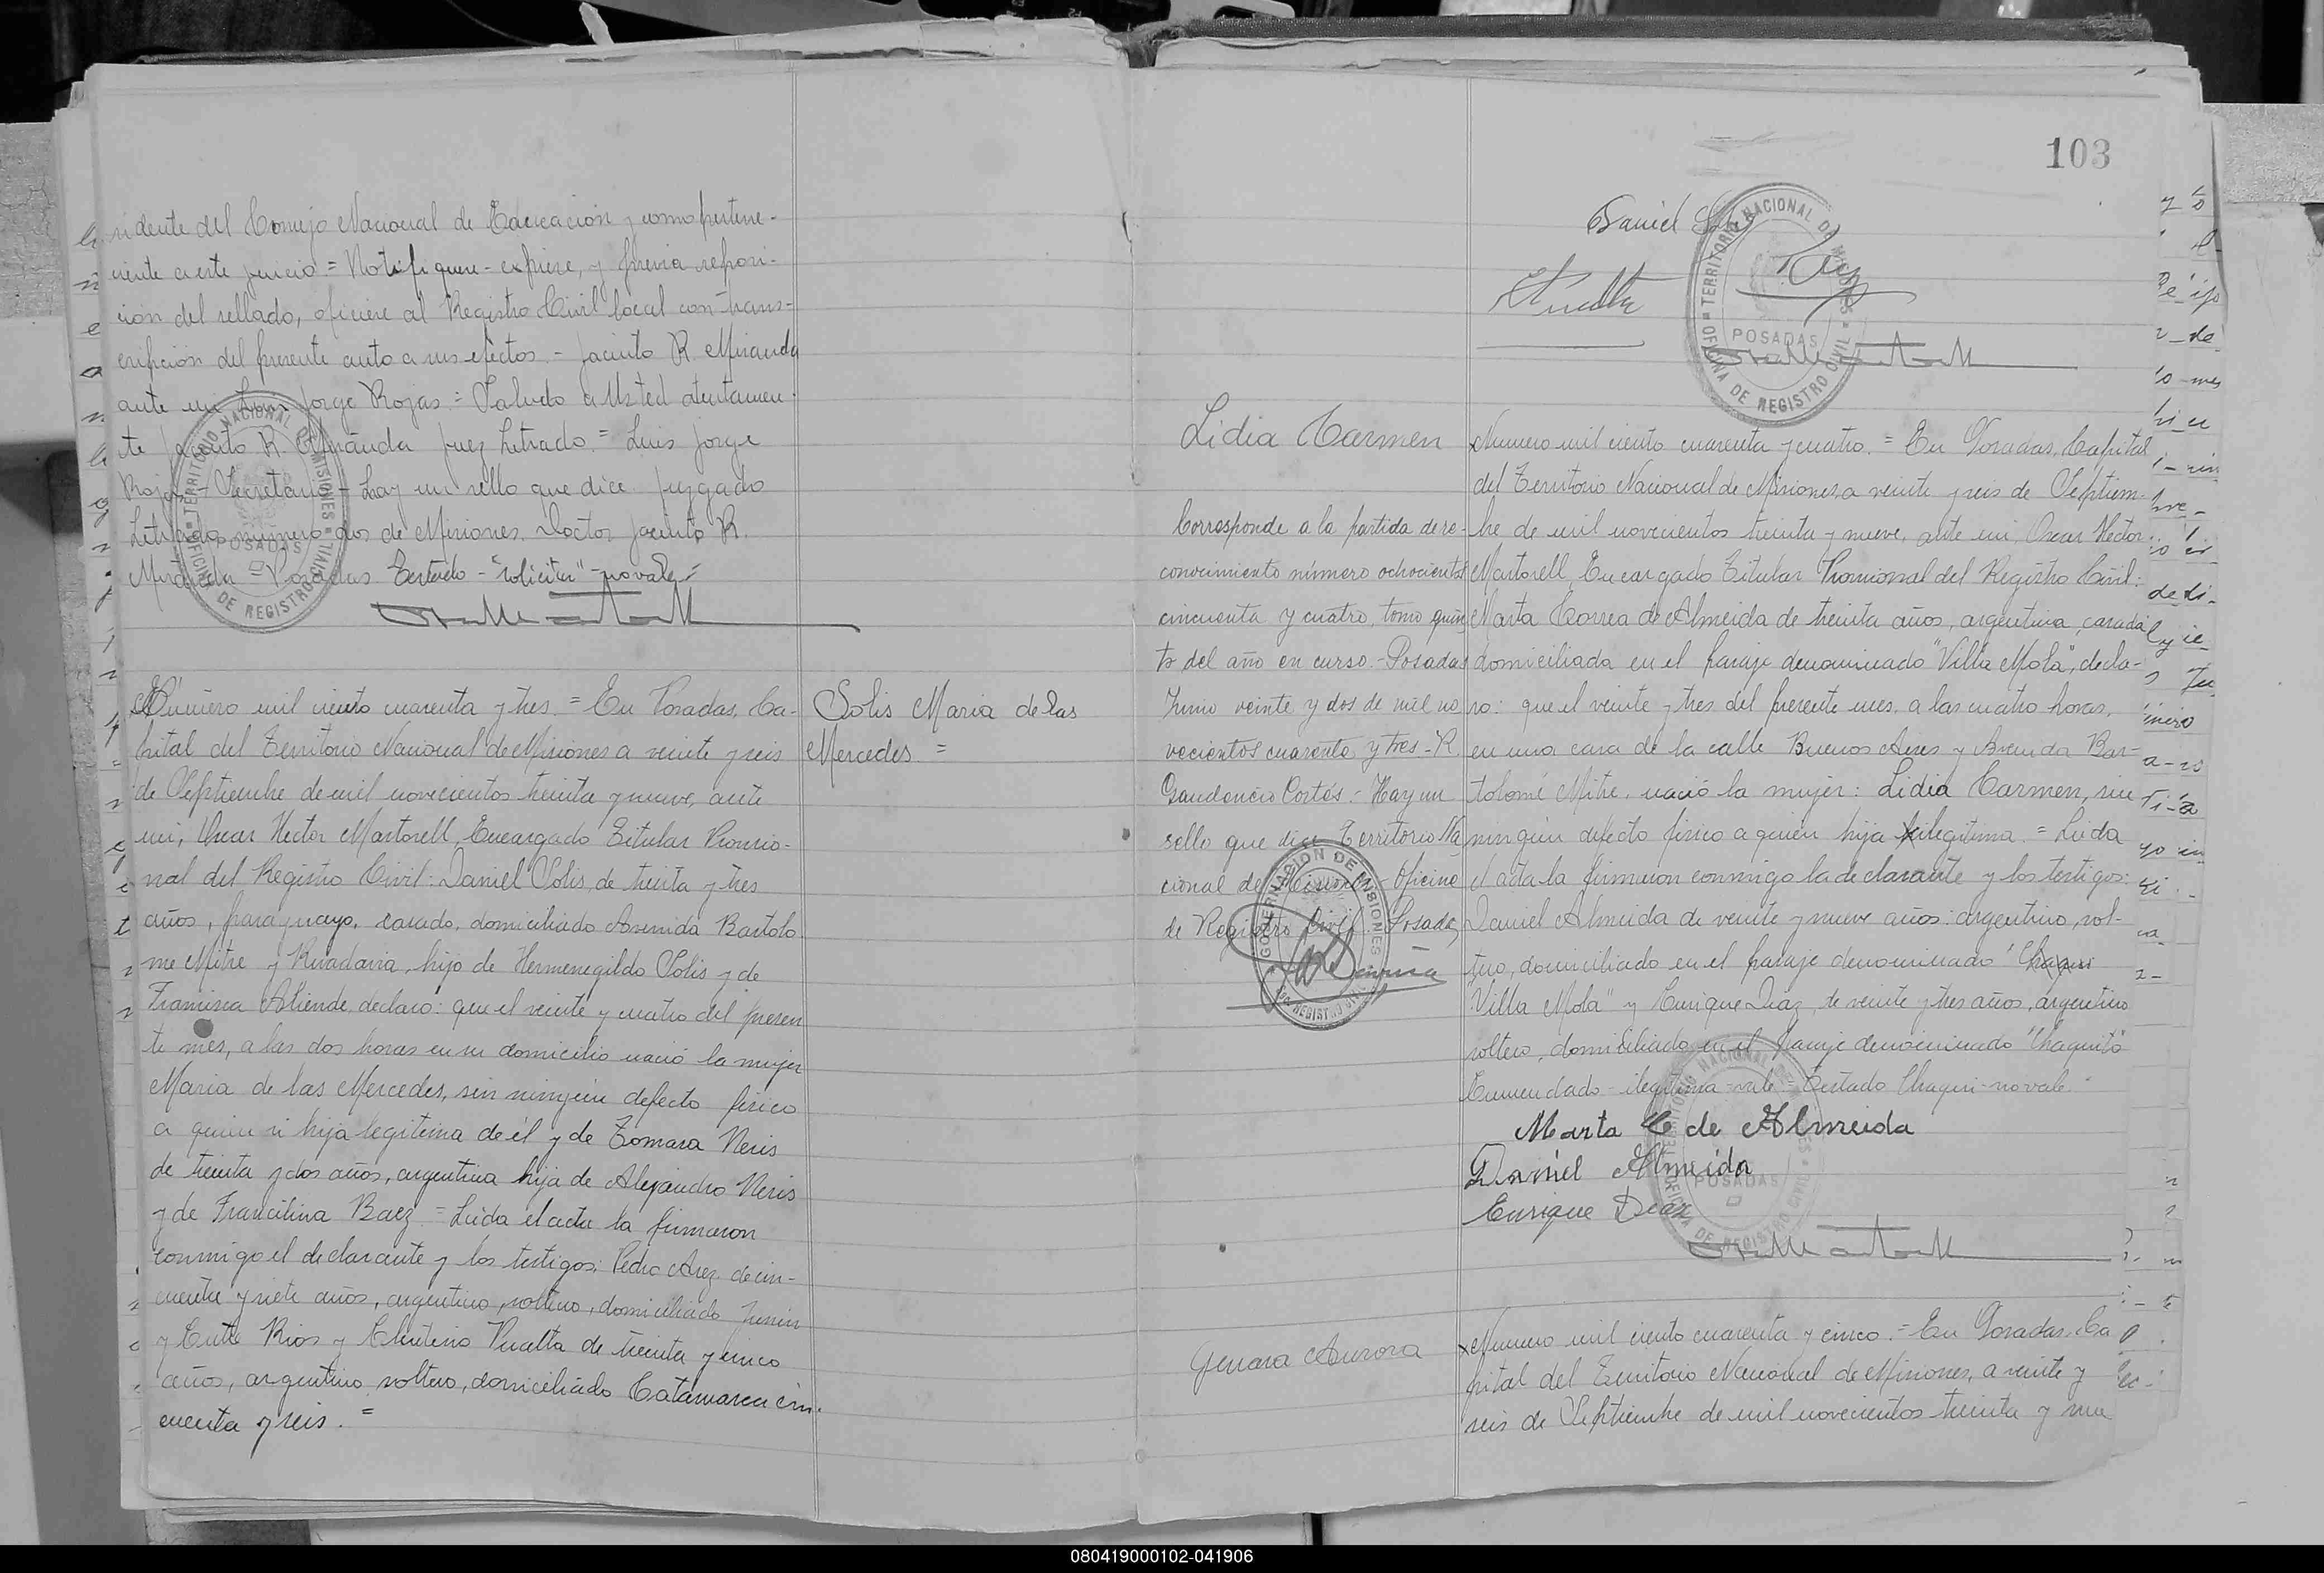 sidente del Consejo Nacional de Educación y como pertene-
ciente a este juicio = Notifiquese - expiese, y previa reposi-
ción del sellado, oficiese al Registro Civil local con trans-
cripción del presente auto a sus efectos. - Jacinto R. Miranda
ante mi Luis Jorge Rojas = Saludo a Usted atentamen-
te Jacinto R. Miranda Juez Letrado = Luis Jorge
Rojas - Secretario - hay un sello que dice Juzgado
Letrado número dos de Misiones. Doctor Jacinto R.
Miranda = Posadas Testado - "solicitar" - no vale =
TERRITORIO NACIONAL DE MISIONES
POSADAS
OFICINA DE REGISTRO CIVIL
Número mil ciento cuarenta y tres. = En Posadas, Ca-
pital del Territorio Nacional de Misiones a veinte y seis
de Septiembre de mil novecientos treinta y nueve, ante
mi, Oscar Hector Martorell, Encargado Titular Provisio-
nal del Registro Civil: Daniel Solis, de treinta y tres
años, paraguayo, casado, domiciliado Avenida Bartolo
me Mitre y Rivadavia, hijo de Hermenegildo Solis y de
Francisca Aliende, declaró: que el veinte y cuatro del presen
te mes, a las dos horas en su domicilio nació la mujer
Maria de las Mercedes, sin ningún defecto fisico
a quien vi hija legitima de él y de Tomasa Neris
de treinta y dos años, argentina hija de Alejandro Neris
y de Francilina Baez. = Leida el acta la firmaron
conmigo el declarante y los testigos: Pedro Arez de cin-
cuenta y siete años, argentino, soltero, domiciliado Junin
y Entre Rios y Peralta de treinta y cinco
años, argentino, soltero, domiciliado Catamarca cin-
cuenta y seis. =
Solis Maria de las
Mercedes. =
103
Daniel Solis
TERRITORIO NACIONAL DE MISIONES
POSADAS
OFICINA DE REGISTRO CIVIL
Lidia Carmen
Corresponde a la partida de re-
conocimiento número ochocientos
cincuenta y cuatro, tomo quin
to del año en curso. - Posadas
Junio veinte y dos de mil no
vecientos cuarenta y tres - R.
Gaudencio Cortés. - Hay un
sello que dice Territorio Na
cional de Misiones Oficina
de Registro Civil. Posadas
GOBERNACION DE MISIONES
REGISTRO CIVIL
Numero mil ciento cuarenta y cuatro. = En Posadas, Capital
del Territorio Nacional de Misiones, a veinte y seis de Septiem-
bre de mil novecientos treinta y nueve, ante mi, Oscar Hector
Martorell, Encargado Titular Provisional del Registro Civil:
Marta Correa de Almeida de treinta años, argentina, casada
domiciliada en el paraje denominado "Villa Mola", decla-
ro: que el veinte y tres del presente mes, a las cuatro horas,
en una casa de la calle Buenos Aires y Avenida Bar-
tolomé Mitre, nació la mujer: Lidia Carmen, sin
ningún defecto fisico a quien hija ilegitima. = Leida
el acta la firmaron conmigo la declarante y los testigos:
Daniel Almeida de veinte y nueve años: argentino, sol-
tero, domiciliado en el paraje denominado "Chaqui
"Villa Mola" y Enrique Diaz, de veinte y tres años, argentino
soltero, domiciliado en el paraje denominado "Chaquito"
Enmendado - ilegitima - vale = Testado Chaqui - no vale. =
Marta C de Almeida
Daniel Almeida
Enrique Diaz
TERRITORIO NACIONAL DE MISIONES
POSADAS
OFICINA DE REGISTRO CIVIL
Genara Aurora
Numero mil ciento cuarenta y cinco. = En Posadas, Ca
pital del Territorio Nacional de Misiones, a veinte y
seis de Septiembre de mil novecientos treinta y nue
080419000102-041906